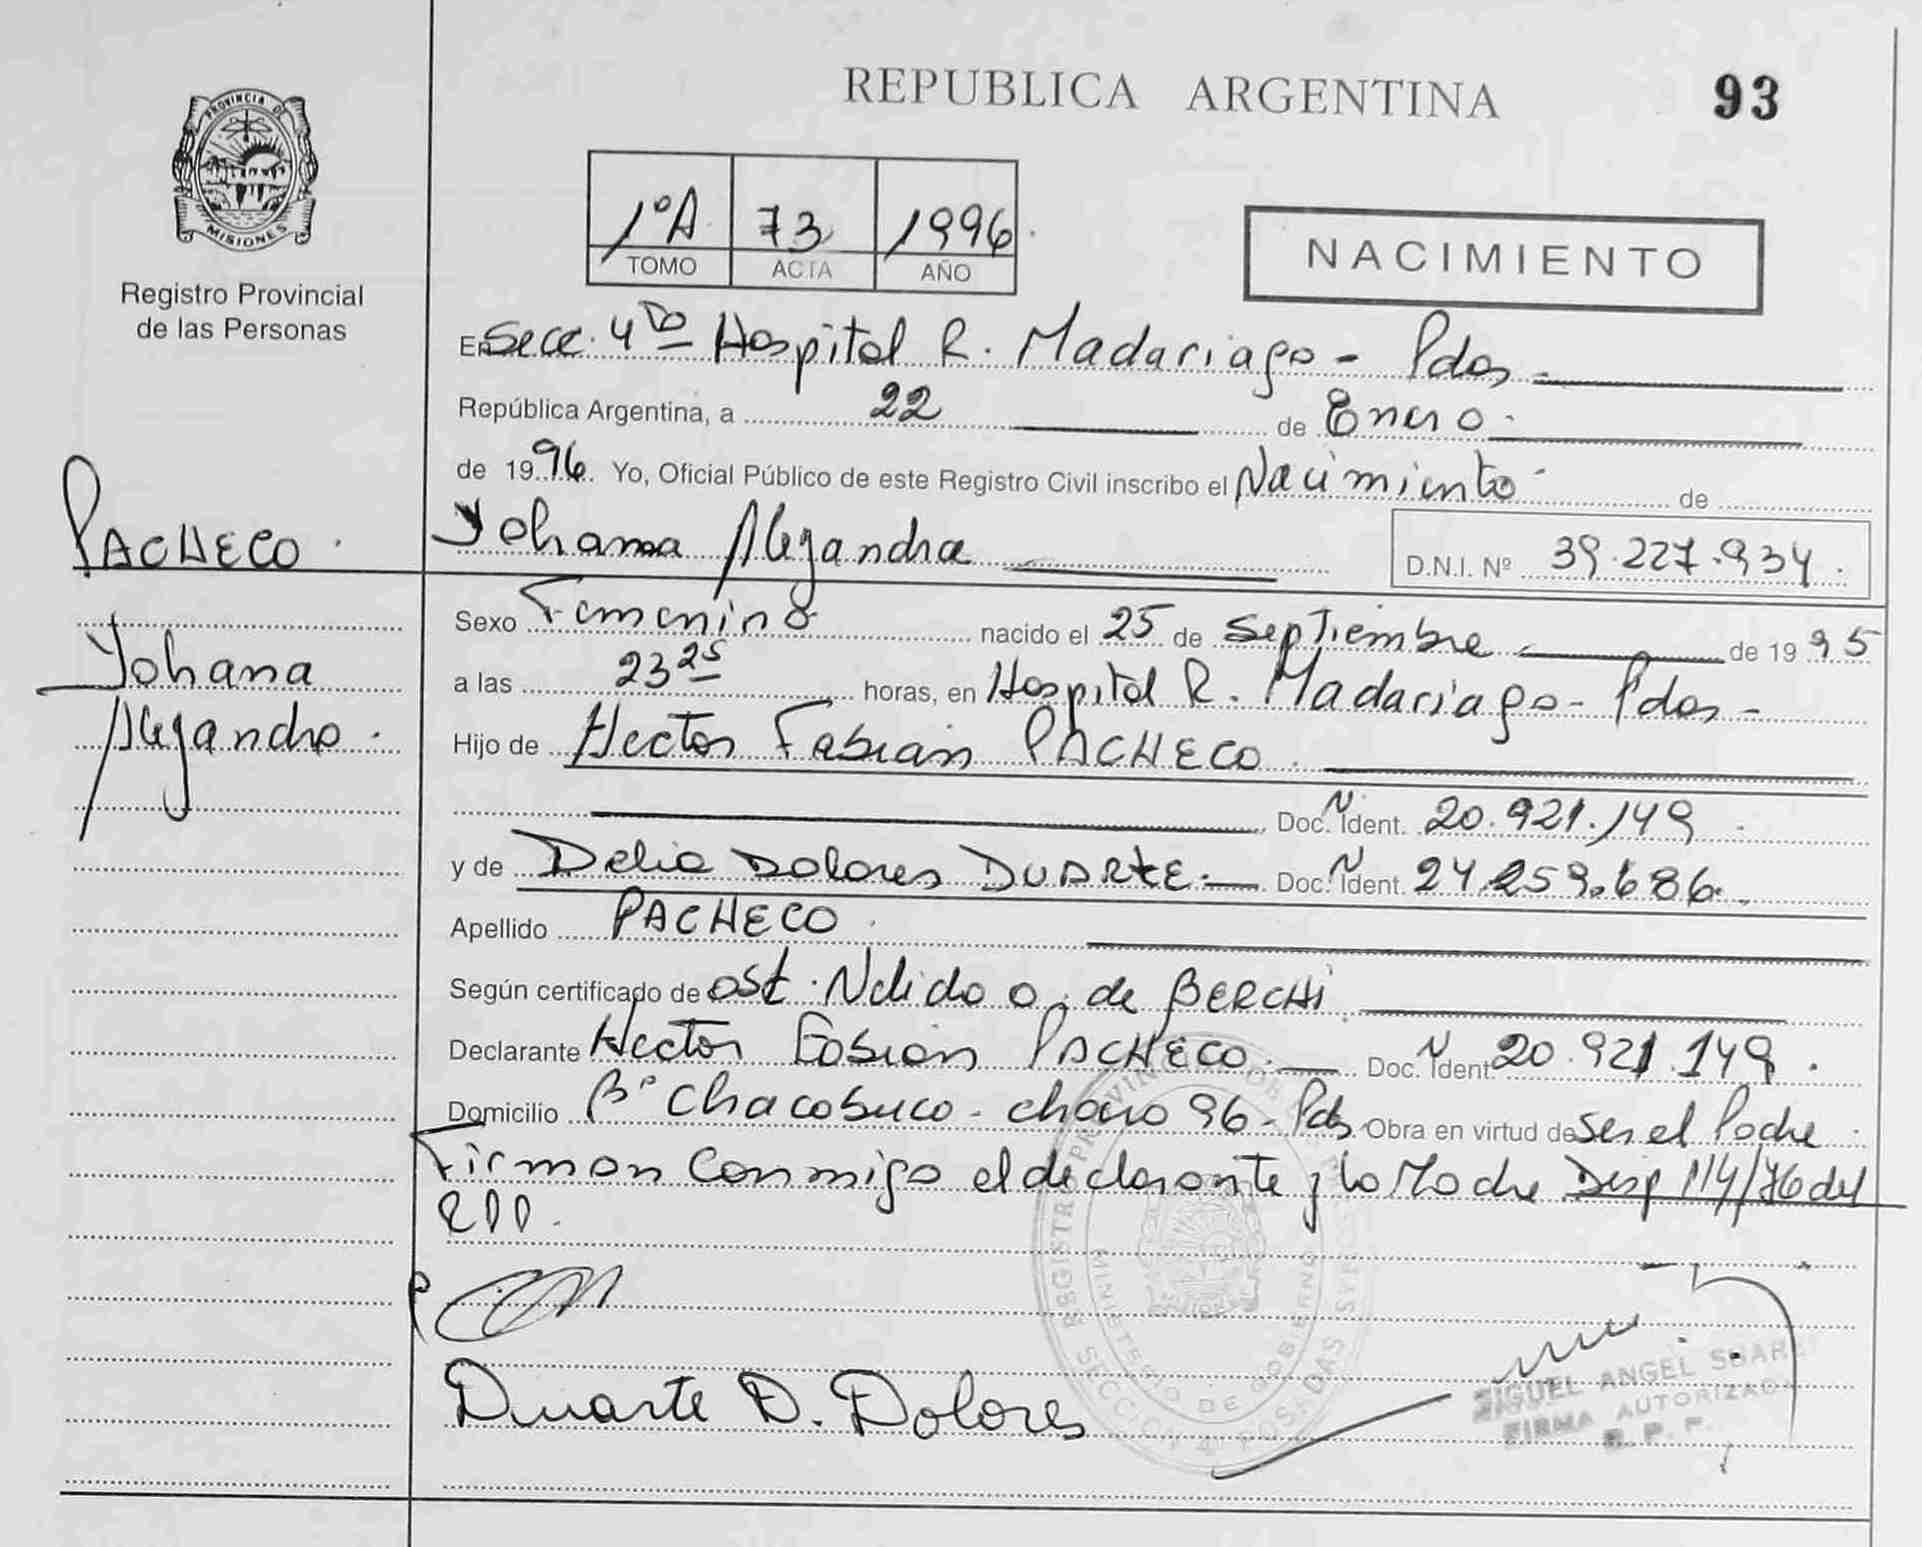 REPUBLICA ARGENTINA
93
PROVINCIA DE
MISIONES
Registro Provincial
de las Personas
1ºA 73 1996
TOMO ACTA AÑO
NACIMIENTO
En Secc. 4ta Hospital R. Madariaga - Pdas
República Argentina, a 22 de Enero
de 1996. Yo, Oficial Público de este Registro Civil inscribo el Nacimiento de
PACHECO
Yohana Alejandra
D.N.I. Nº 39.227.934.
Yohana
Alejandra.
Sexo Femenino nacido el 25 de Septiembre de 1995
a las 23 25 horas, en Hospital R. Madariaga - Pdas -
Hijo de Hector Fabian PACHECO.
Doc. N Ident. 20.921.149
y de Delia Dolores DUARTE. Doc. N Ident. 24.259.686.
Apellido PACHECO.
Según certificado de ost. Nelida O. de BERCHI
Declarante Hector Fabian PACHECO. Doc. N Ident. 20.921.149.
Domicilio Bº Chacabuco - 96 - Pdas Obra en virtud de Ser el Padre
Firman conmigo el declarante y la Madre Disp 114/76 del
Duarte D. Dolores
MIGUEL ANGEL
FIRMA AUTORIZADA
R. P. P.
REGISTRO
MINISTERIO DE GOBIERNO
SECCION 4ª POSADAS